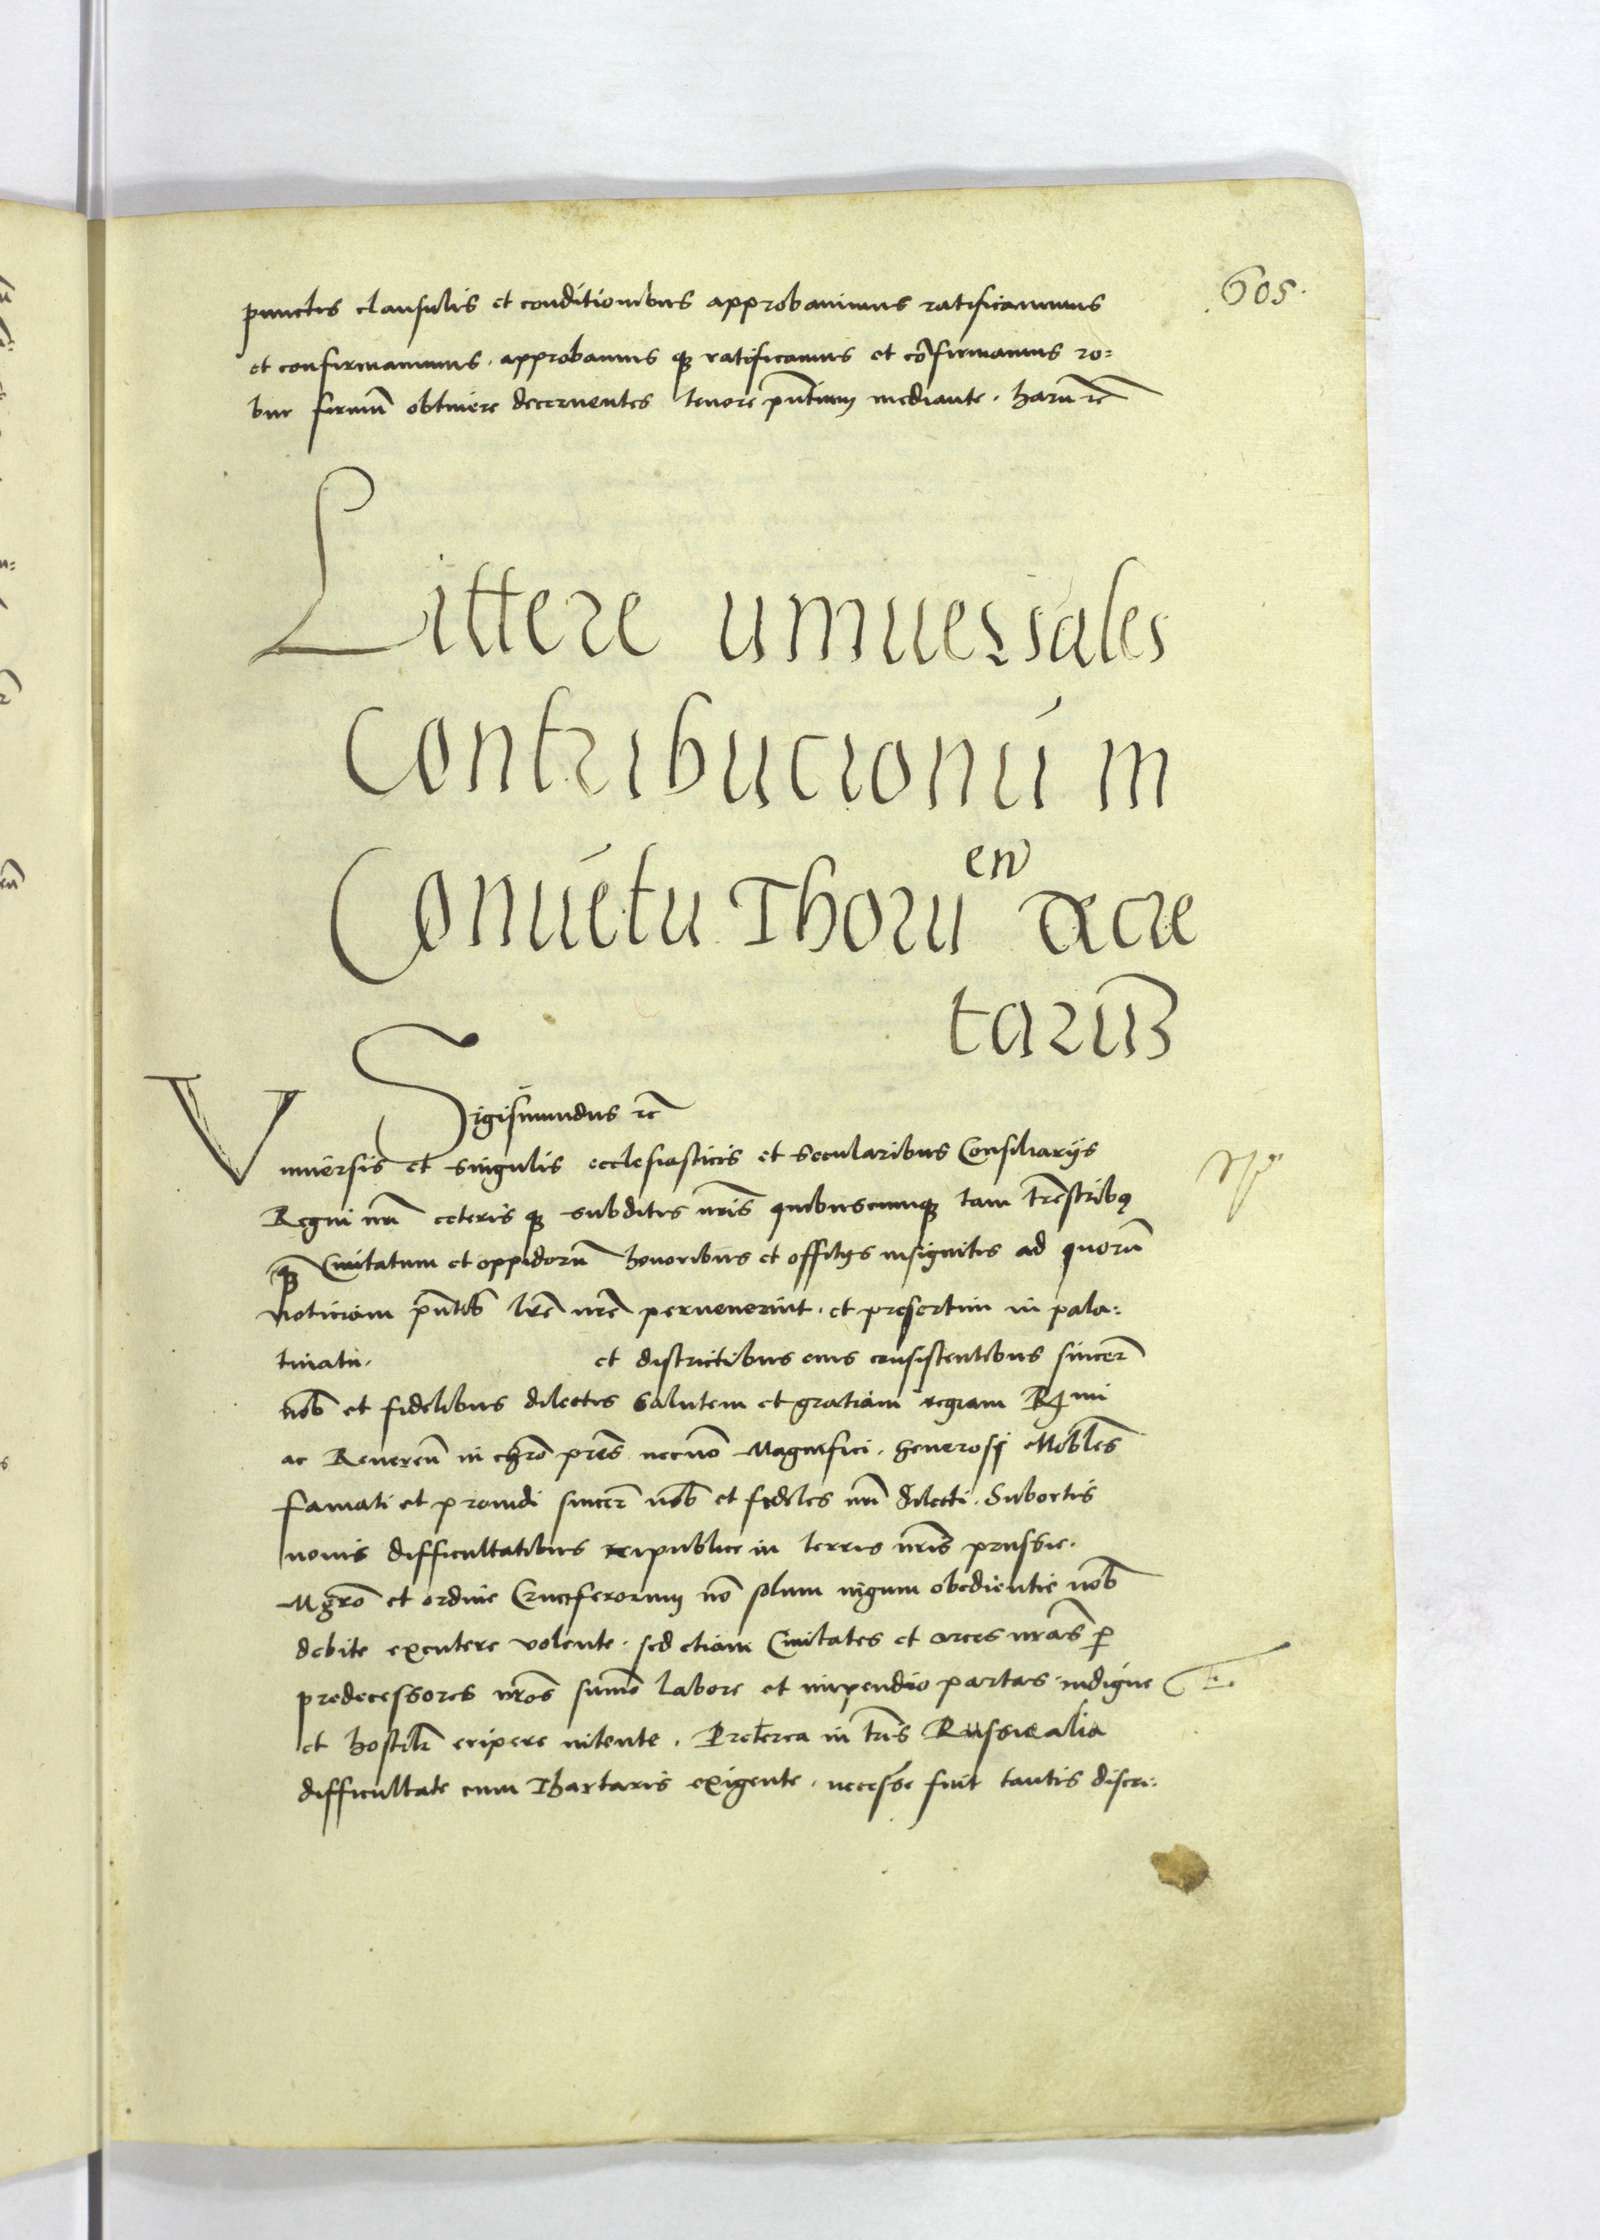 605.
punctis clausulis et conditionibus approbavimus ratificavimus
et confirmavimus. approbamus qȝ ratificamus et cōfirmamus ro=
bur firmū obtinere decernentes tenore pn̄tium mediante. harū rc̄
Littere uniuersales
Contribucionū in
Conuētu Thoruen decre
tarū
Sigismundus rc̄
Vniuersis et singulis ecclesiasticis et secularibus Consiliarijs
Regni nr̄i ceteris qȝ subditis nr̄is quibuscunqȝ tam tr̄estribȝ
qȝ Ciuitatum et oppidorū honoribus et offitijs insignitis ad quorū
noticiam pn̄tes lr̄e nr̄e peruenerint. et presertim in pala=
tinatu. et districtibus eius consistentibus sincerē
nob̄ et fidelibus dilectis salutem et gratiam regiam Rmi
ac Reueren̄ in chr̄o pr̄es necnō Magnifici. Generosi Nobiles
famati et prouidi sincerē nob̄ et fideles nr̄i dilecti. Subortis
nouis difficultatibus reipublice in terris nr̄is prussie.
Mgr̄o et ordine Cruciferorum nō solum iugum obedientie nob̄
debite excutere volente. sed etiam Ciuitates et arces nr̄as p̄
predecessores nr̄os summo labore et impendio partas indigne
et hostilr̄ eripere nitente. Preterea in tr̄is Russie alia
difficultate cum Thartaris exigente. necesse fuit tantis discri=